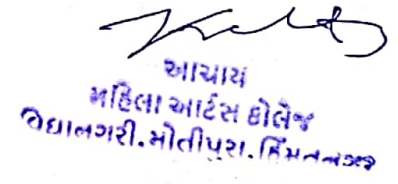 આચાર્ય
મહિલા આર્ટસ કોલેજ
વિદ્યાનગરી. મોતીપુરા. હિંમતનગર